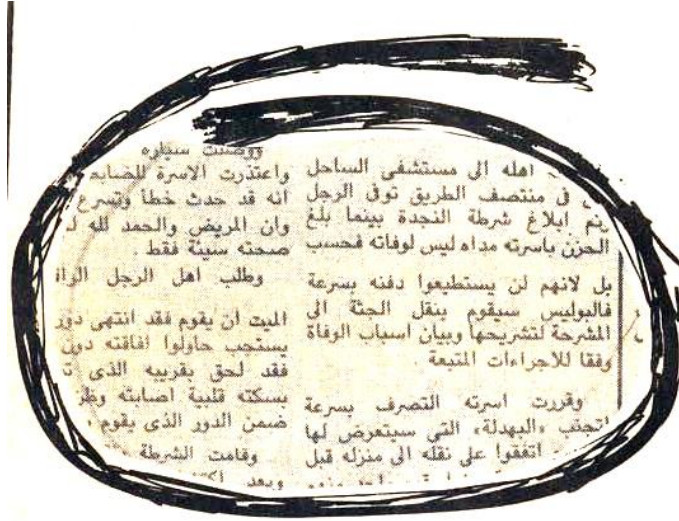 اهله الى مستشفى الساحل
فى منتصف الطريق توفى الرجل
ابلاغ شرطة النجدة بينما بلغ
الحزن باسرته مداه ليس لوفاته فحسب
بل لانهم لن يستطيعوا دفنه بسرعة
فالبوليس سيقوم بنقل الجثة الى
المشرحة لتشريحها وبيان اسباب الوفاة
وفقا للاجراءات المتبعة .
وقررت اسرته التصرف بسرعة
لتجنب «البهدلة» التي سيتعرض لها
اتفقوا على نقله الى منزله قبل
ووصلت سياره
واعتذرت الاسرة للضابط
انه قد حدث خطأ وتسرع
وان المريض والحمد لله
صحته سيئة فقط .
وطلب اهل الرجل
الميت ان يقوم فقد انتهى دور
يستجب حاولوا افاقته دون
فقد لحق بقريبه الذى
بسكته قلبية اصابته
ضمن الدور الذى يقوم
وقامت الشرطة
وبعد